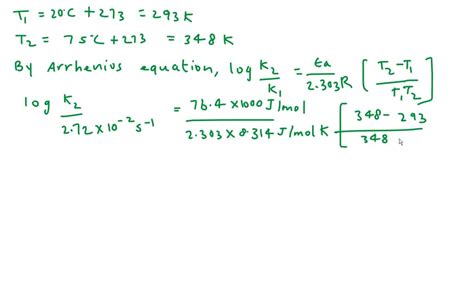 T1 = 20°C + 273 = 293 K
T2 = 75°C + 273 = 348 K
By Arrhenius equation, log K2/K1 = Ea/2.303R [T2-T1/T1T2]
log K2/2.72 × 10^-2 s^-1 = 76.4 × 1000 J/mol/2.303 × 8.314 J/mol K [348 - 293/348